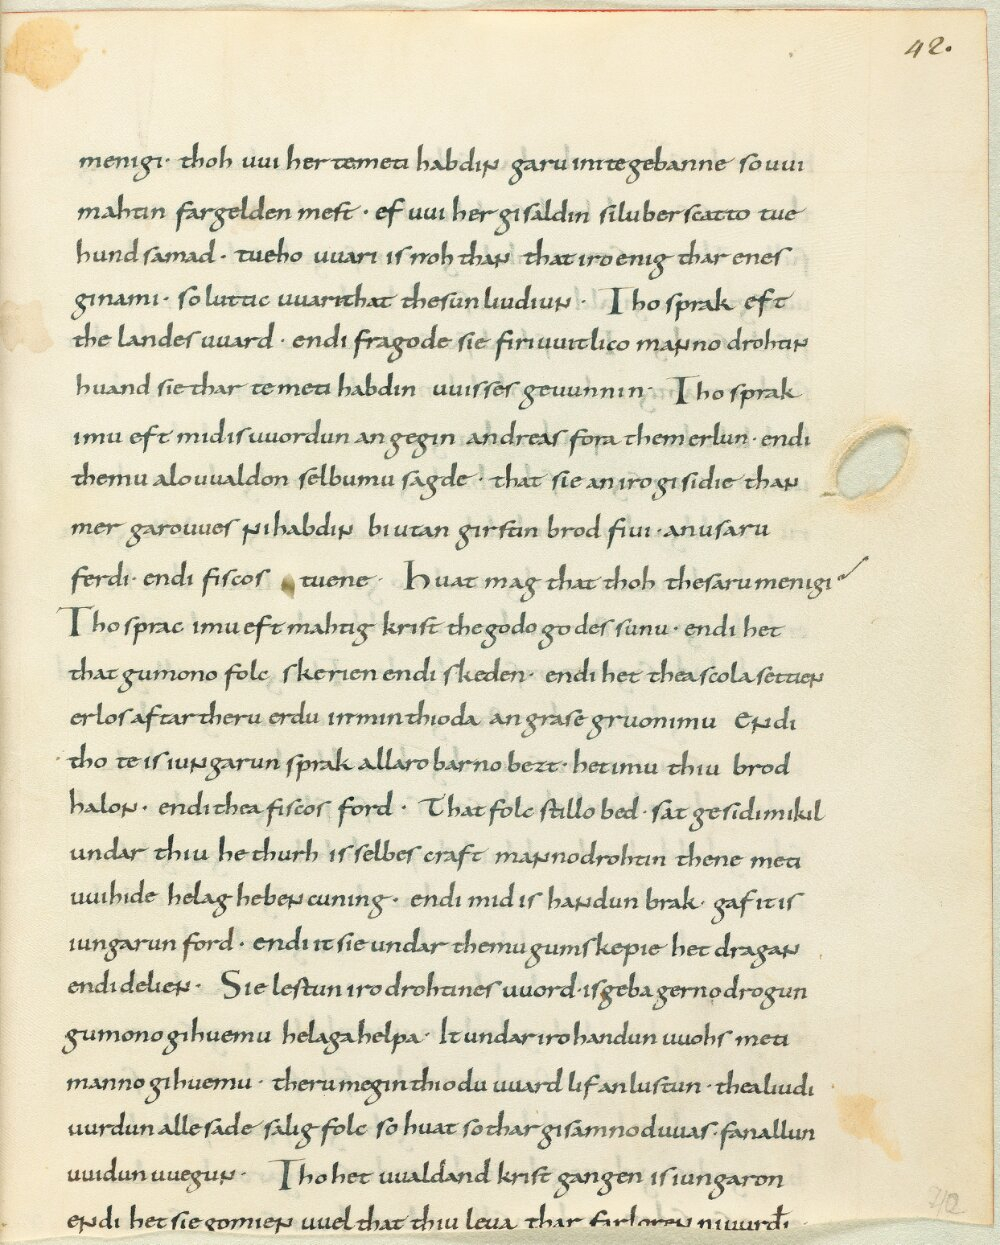 42.
menigi· thoh uui her te meti habdin garu im te gebanne so uui
mahtin fargelden mest · ef uui her gisaldin siluber scatto tue
hund samad · tueho uuari is noh than that iro enig thar enes
ginami · so luttic uuari that thesun liudiun · Tho sprak eft
the landes uuard · endi fragode sie firiuuitlico manno drohtin
huand sie thar te meti habdin uuisses geuunnin· Tho sprak
imu eft mid is uuordun angegin andreas fora them erlun · endi
themu alouualdon selbumu sagde · that sie an iro gisidie than
mer garouues ni habdin biutan girstin brod fiui · an usaru
ferdi · endi fiscos tuene · Huat mag that thoh thesaru menigi
Tho sprac imu eft mahtig krist the godo godes sunu · endi het
that gumono folc skerien endi skeden · endi het thea scola settien
erlos aftar theru erdu irminthioda an grase gruonimu Endi
tho te is iungarun sprak allaro barno bezt · het imu thiu brod
halon · endi thea fiscos ford · That folc stillo bed · sat gesidi mikil
undar thiu he thurh is selbes craft manno drohtin thene meti
uuihide helag heben cuning · endi mid is handun brak · gaf it is
iungarun ford · endi it sie undar themu gumskepie het dragan
endi delien · Sie lestun iro drohtines uuord · is geba gerno drogun
gumono gihuemu helaga helpa · It undar iro handun uuohs meti
manno gihuemu · theru megin thiodu uuard lif an lustun · thea liudi
uurdun alle sade salig folc so huat so thar gisamnod uuas · fan allun
uuidun uuegun · Tho het uualdand krist gangen is iungaron
endi het sie gomien uuel that thiu leua thar farloren ni uurdi